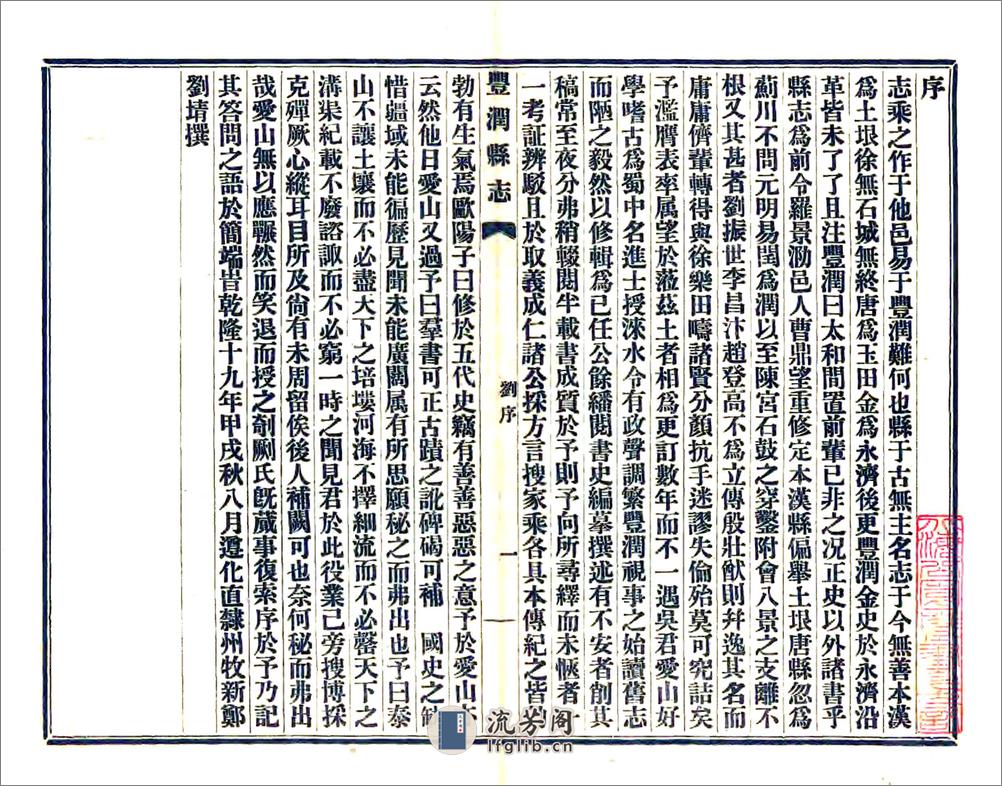 序
志乘之作于他邑易于豐潤難何也縣于古無主名志于今無善本漢
爲土垠徐無石城無終唐爲玉田金爲永濟後更豐潤金史於永濟沿
革皆未了了且注豐潤曰太和間置前輩已非之况正史以外諸書乎
縣志爲前令羅景泐邑人曹鼎望重修定本漢縣偏舉土垠唐縣忽爲
薊川不問元明易閏爲潤以至陳宮石鼓之穿鑿附會八景之支離不
根又其甚者劉振世李昌汴趙登高不爲立傳殷壯猷則幷逸其名而
庸庸儕輩轉得與徐樂田疇諸賢分顏抗手迷謬失倫殆莫可究詰矣
予濫膺表率属望於蒞茲土者相爲更訂數年而不一遇吳君愛山好
學嗜古爲蜀中名進士授淶水令有政聲調繁豐潤視事之始讀舊志
而陋之毅然以修輯爲已任公餘繙閱書史編摹撰述有不安者削其
稿常至夜分弗稍輟閱半載書成質於予則予向所尋繹而未愜者一
一考証辨駁且於取義成仁諸公採方言搜家乘各具本傳紀之皆
豐潤縣志
劉序
一
勃有生氣焉歐陽子曰修於五代史竊有善善惡惡之意予於愛山亦
云然他日愛山又過予曰羣書可正古蹟之訛碑碣可補 國史之缺
惜疆域未能徧歷見聞未能廣闊属有所思願秘之而弗出也予曰泰
山不讓土壤而不必盡天下之培塿河海不擇細流而不必罄天下之
溝渠紀載不廢諮諏而不必窮一時之聞見君於此役業已旁搜博採
克殫厥心縱耳目所及尙有未周留俟後人補闕可也奈何秘而弗出
哉愛山無以應囅然而笑退而授之剞劂氏旣蕆事復索序於予乃記
其答問之語於簡端旹乾隆十九年甲戌秋八月遵化直隸州牧新鄭
劉靖撰
流芳阁
lfglib.cn